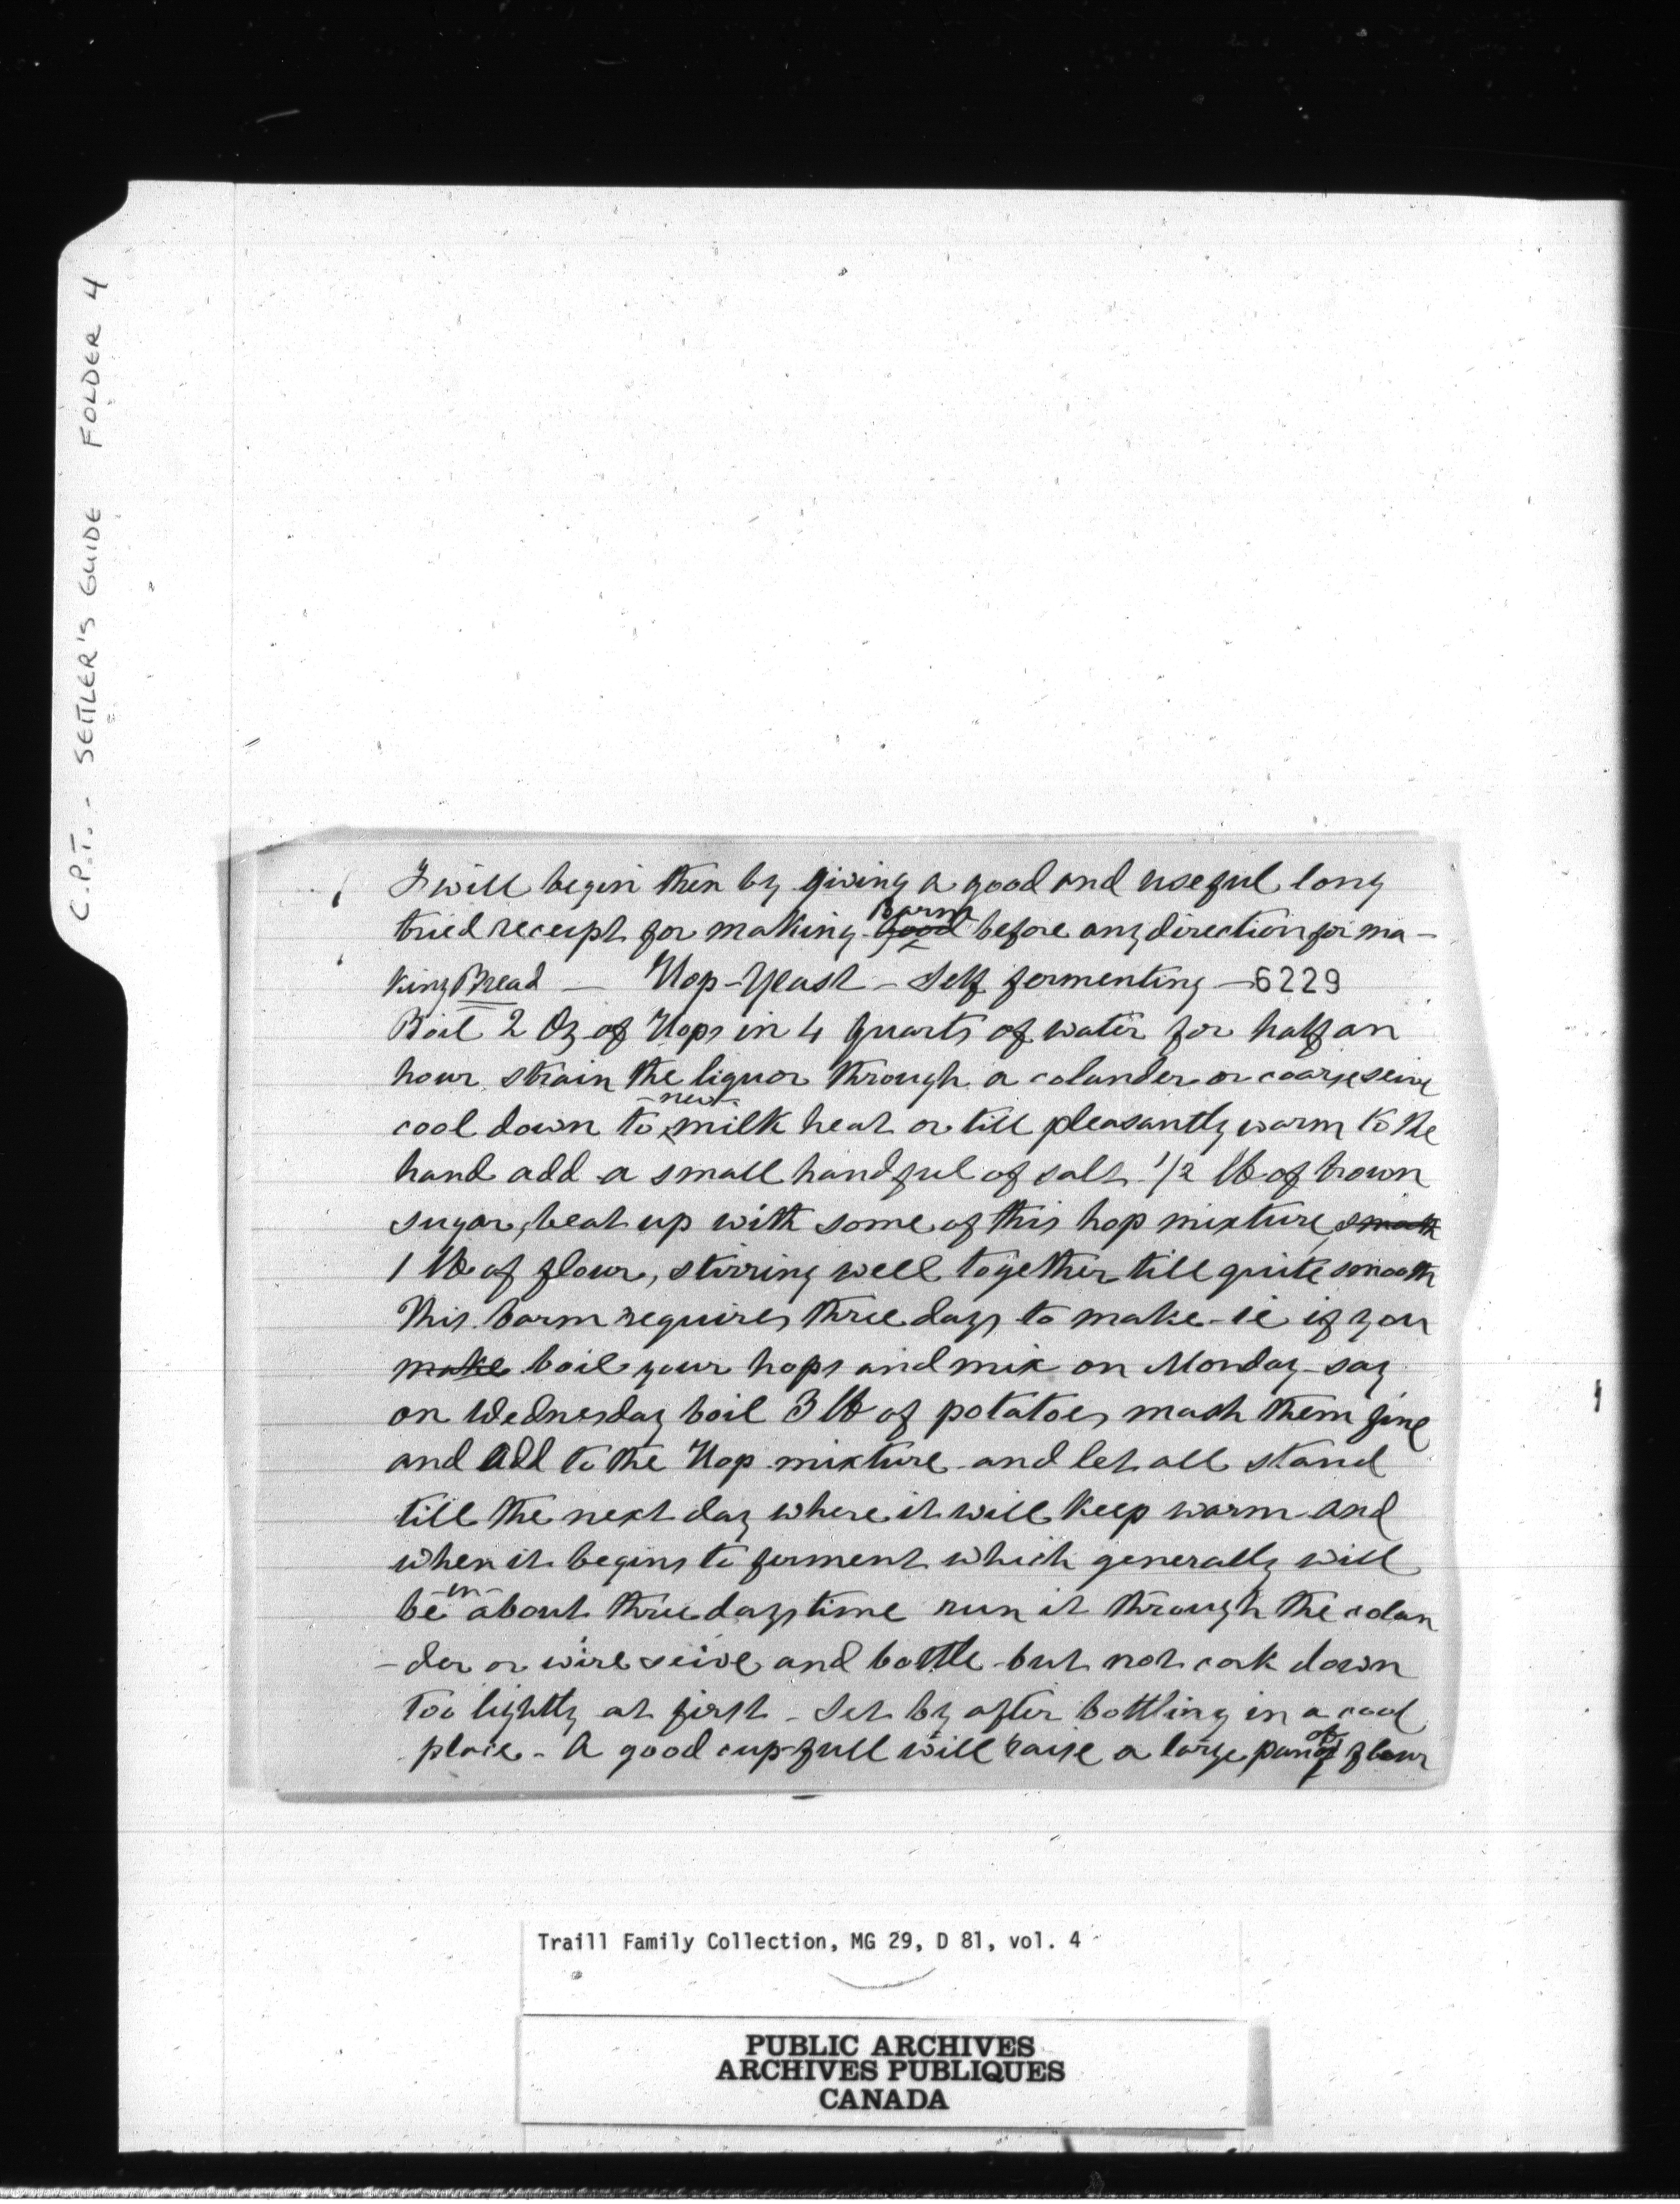 C.P.T. - SETTLER'S GUIDE FOLDER 4
I will begin then by giving a good and useful long
tried receipt for making good Barm before any direction for ma-
king Bread — Hop-Yeast - Self fermenting — 6229
Boil 2 Oz of Hops in 4 quarts of water for half an
hour strain the liquor through a colander or coarse seive
cool down to new milk heat or till pleasantly warm to the
hand add a small handful of salt 1/2 lb of brown
sugar, beat up with some of this hop mixture, smooth
1 lb of flour, stirring well together till quite smooth
This barm requires three days to make - ie if you
make boil your hops and mix on Monday - say
on Wednesday boil 3 lb of potatoes mash them fine
and add to the Hop mixture and let all stand
till the next day where it will keep warm and
when it begins to ferment which generally will
be in about three days time run it through the colan
-der or wire seive and bottle - but not cork down
too tightly at first - Set by after bottling in a cool
place - A good cup-full will raise a large pan of flour
Traill Family Collection, MG 29, D 81, vol. 4
PUBLIC ARCHIVES
ARCHIVES PUBLIQUES
CANADA